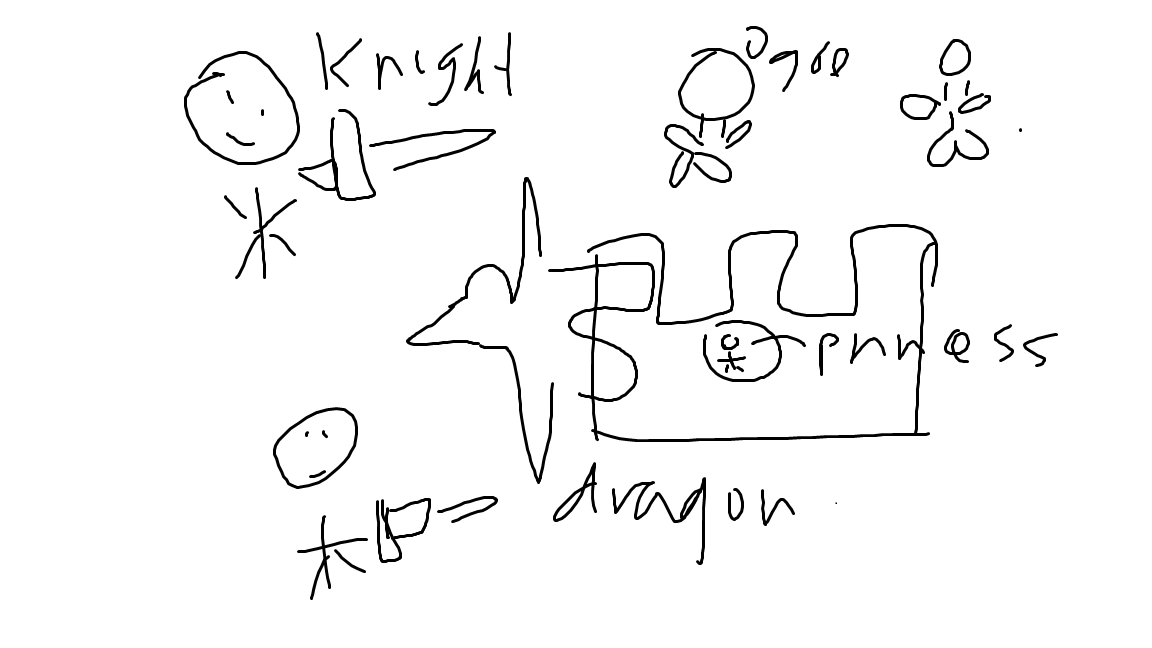 Knight
Ogre
prnness
dragon